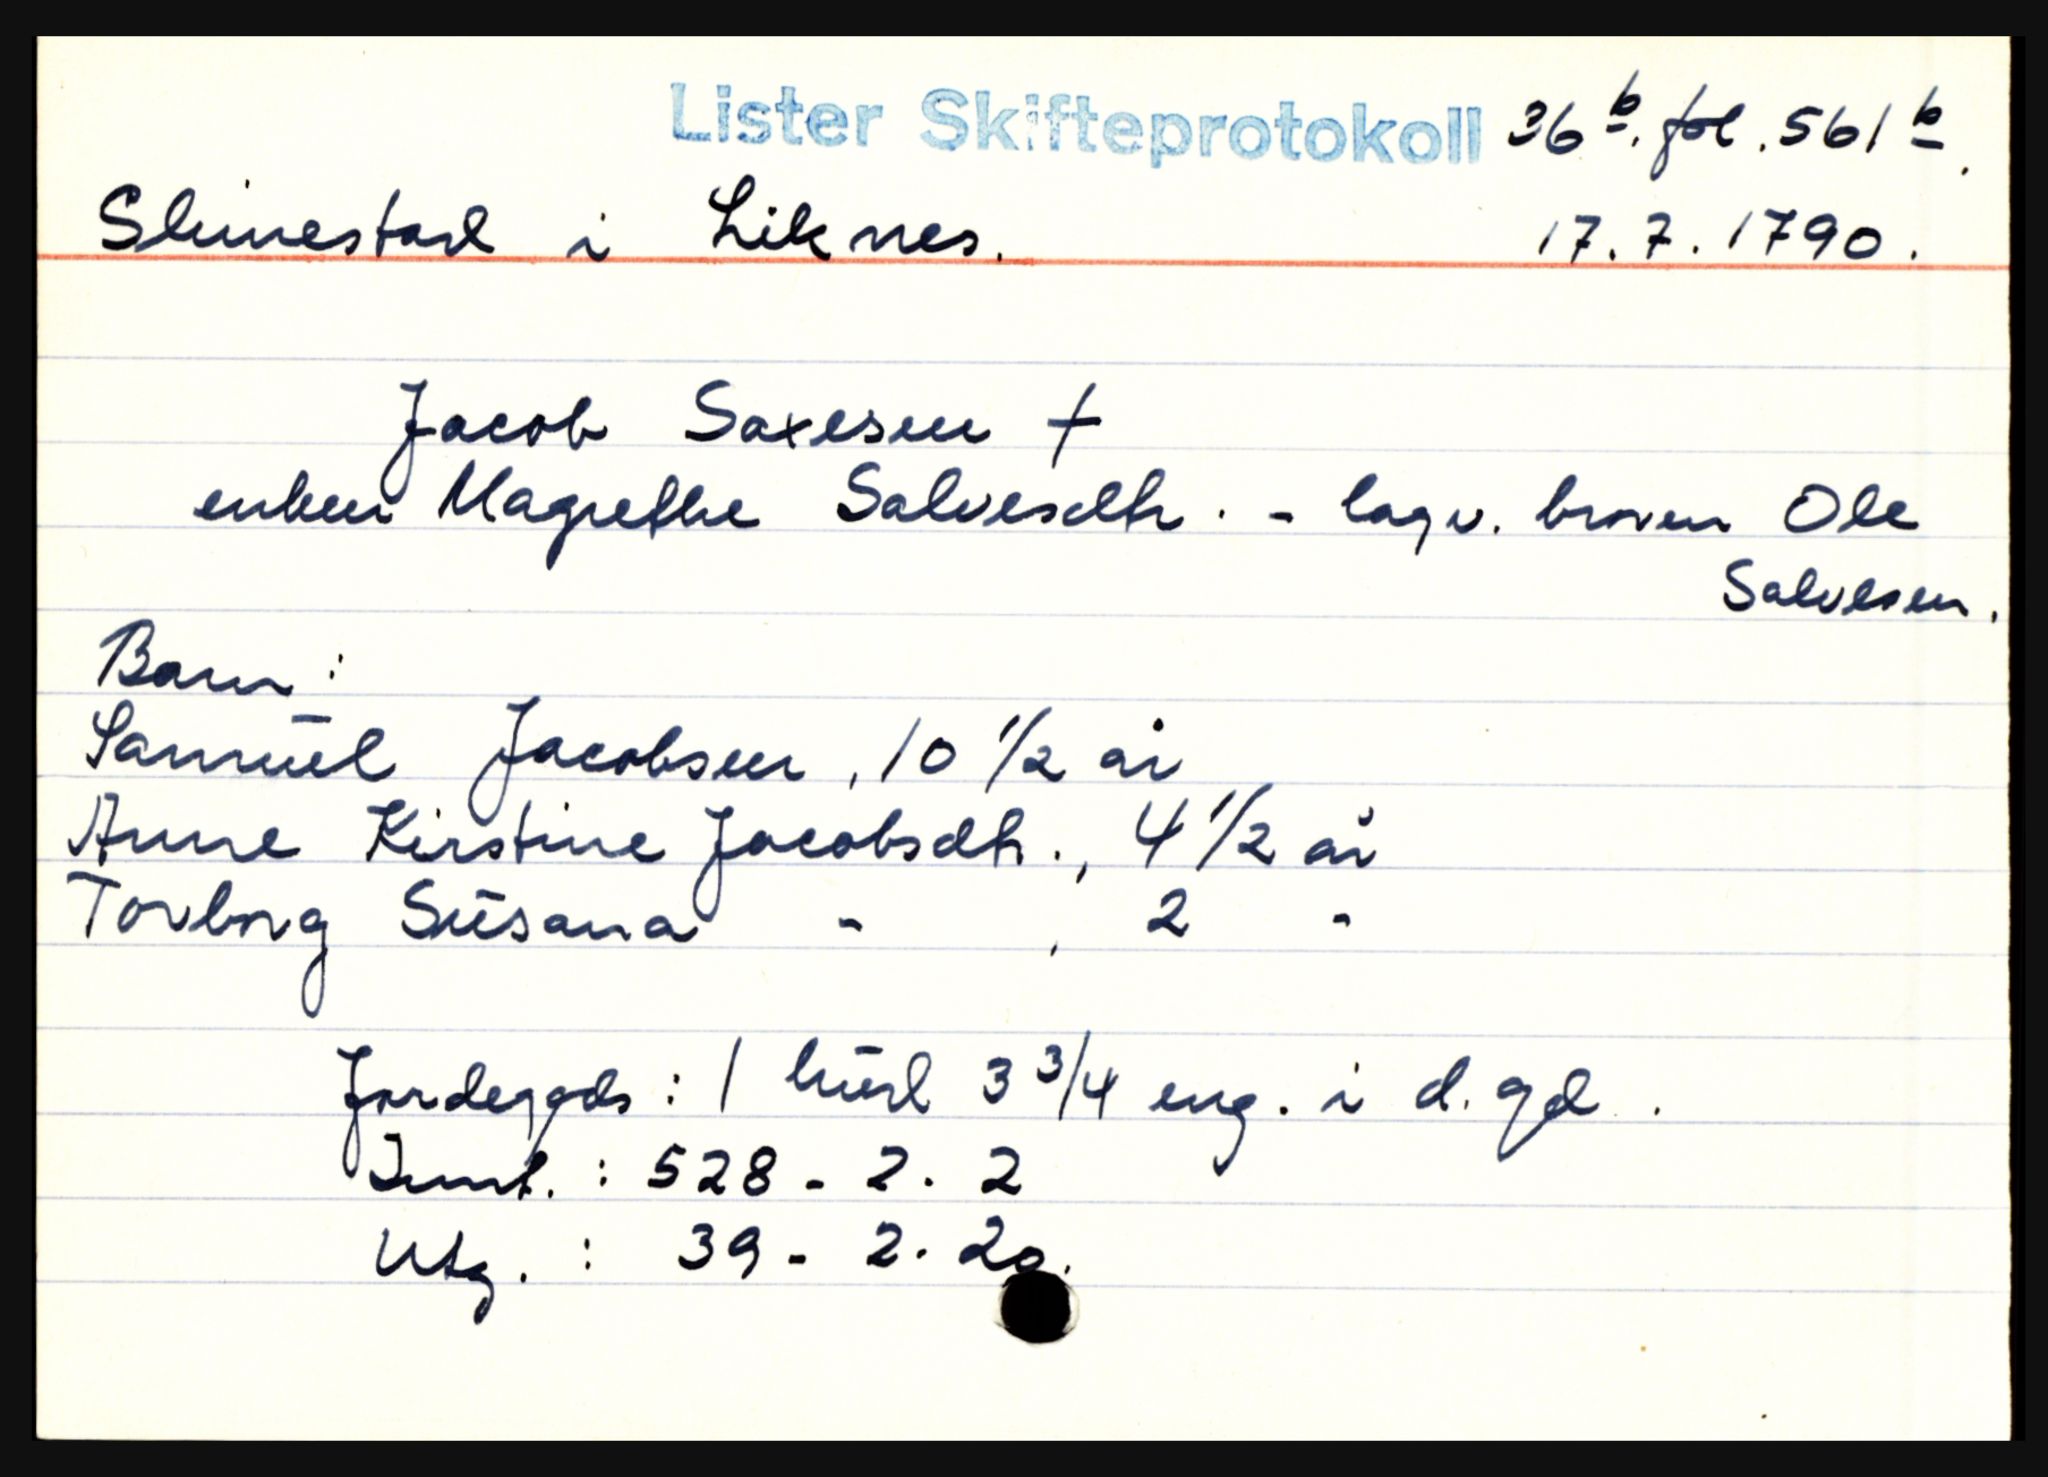 Lister Skifteprotokoll 36 b. fol. 561 b.
Slimestad i Liknes. 17.7.1790.
Jacob Saxesen †
enken Magrethe Salvesdtr. - lagv. broren Ole
Salvesen.
Barn:
Samūel Jacobsen, 10 1/2 år
Anne Kirstine Jacobsdtr., 4 1/2 år
Torborg Sūsana - , 2 -
Jordegods: 1 hūd 3 3/4 eng. i d. gd.
Innt.: 528 - 2. 2
Utg.: 39 - 2. 20.